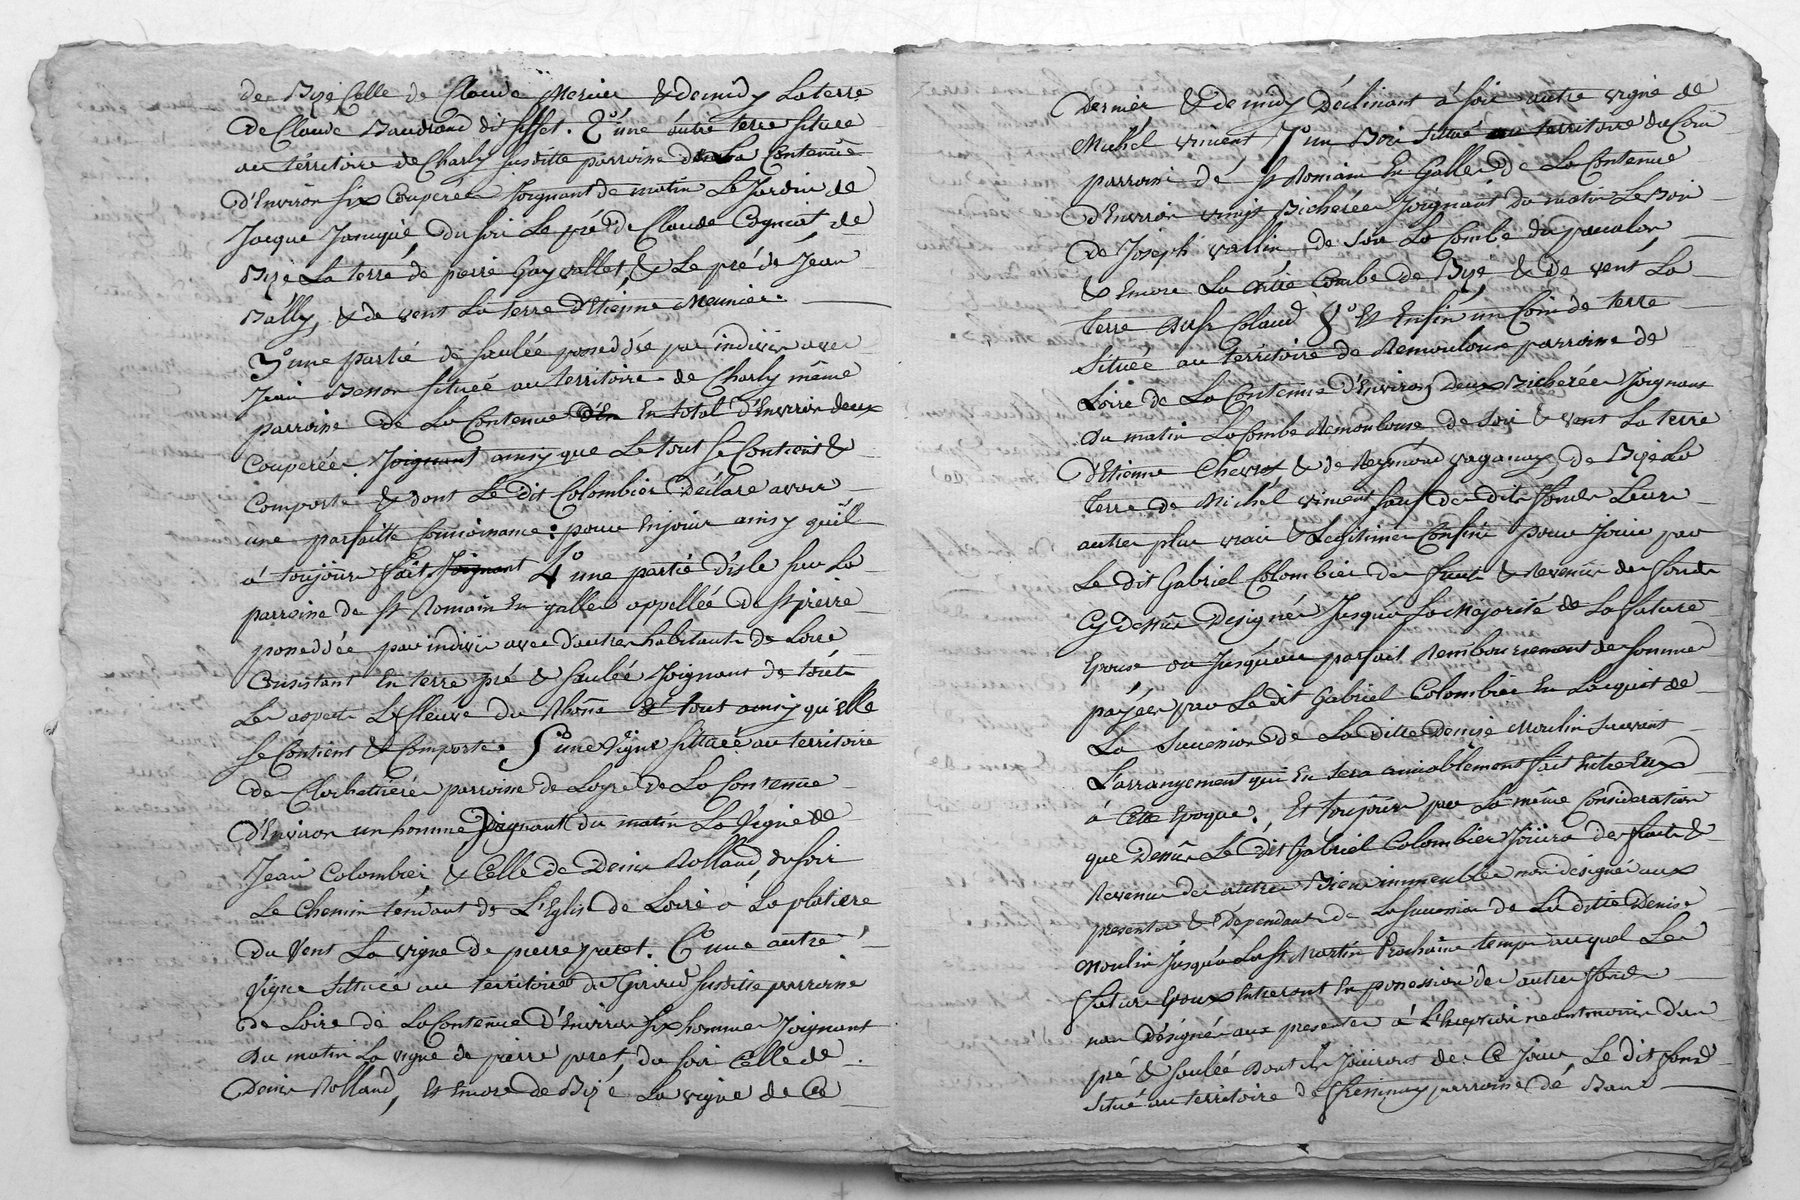 de Bize Celle de Claude Mercier & de midy La terre
de Claude Baudrand dit sifflet. 2° une autre terre située
au térritoire de Charly susditte parroisse de La Contenüe
d'Environ six Couperées Joignant de matin Le Jardin de
Jacque Janiqué du soir Le pré de Claude Cogniat, de
Bize La terre de pierre Gay vallet, & Le pré de Jean
Bally, & de vent La terre d'Etienne Meunier.
3° une partié de saulée possedée par indivis avec
Jean Besson située au territoire de Charly même
parroisse de La Contenue En total d'Environ deux
Couperées ainsy que Le tout se Contient &
Comporte & dont Le dit Colombier Déclare avoir
une parfaitte Connoissance : pour En jouir ainsy qu'il
à toujours fait 4° une partié d'isle sur La
parroisse de St Romain En galles appellée de St pierre
possedée par indivis avec d'autres habitants de Loire
Consistant En terre pré & saulée Joignant de touts
Les aspects Le fleuve du Rhône & tout ainsy qu'elle
se Contient & Comporte. 5° une Vigne située au territoire
de parroisse de Loyre de La Contenue
d'Environ un homme Joignant du matin La Vigne de
Jean Colombier & Celle de Denis Rolland, du soir
Le Chemin téndant de L'Eglise de Loire à La platiere
du Vent La vigne de pierre paret. 6° une autre
Vigne située au territoire du Giraud susditte parroisse
de Loire de La Contenue d'Environ six hommes Joignant
du matin La vigne de pierre paret, du soir Celle de
Denis Rolland, Et Encore de Bize La vigne de Ce
Dernier & de midy Déclinant à soir autre vigne de
Michel vincent 7° un Bois situé au territoire du Coin
parroisse de St Romain En Galles de La Contenue
d'Environ vingt Bicherées Joignant du matin Le Bois
de Joseph vallin, de soir La Combe du
& Encore La ditte Combe de Bize, & de vent La
terre Colaud 8° Et Enfin un Coin de terre
située au territoire de Remoulons parroisse de
Loire de La Contenue d'Environ deux Bicherées Joignant
du matin La Combe Remoulons de soir & vent La terre
d'Etienne & de Reymond vaganay de Bize La
terre de Michel vincent sauf desdits fonds Leurs
autres plus vrais & Legitimes Confins pour Jouir par
Le dit Gabriel Colombier des fruits & Revenus des fonds
Cy dessus Designés Jusqu'à La Majorité de La future
Epouse ou Jusqu'au parfait Remboursement des sommes
payées par Le dit Gabriel Colombier En L'acquit de
La Succession de La ditte Denise Moulin suivant
L'arrangement qui En sera amiablement fait Entre Eux
à Cette Epoque ; Et toujours par La même Considération
que Dessus Le dit Gabriel Colombier Joüira des fruits &
Revenus des autres Biens immeubles non désignés aux
presentes & Dépendants de La succession de La ditte Denise
Moulin Jusqu'à La St Martin Prochaine temps auquel Les
futurs Epoux Entreront En possession des autres fonds
non Désignés aux presentes à L'Exception neantmoins d'un
pré & saulée Dont ils Joüiront dès Ce Jour, Le dit fond
situé au territoire de parroisse de Bans